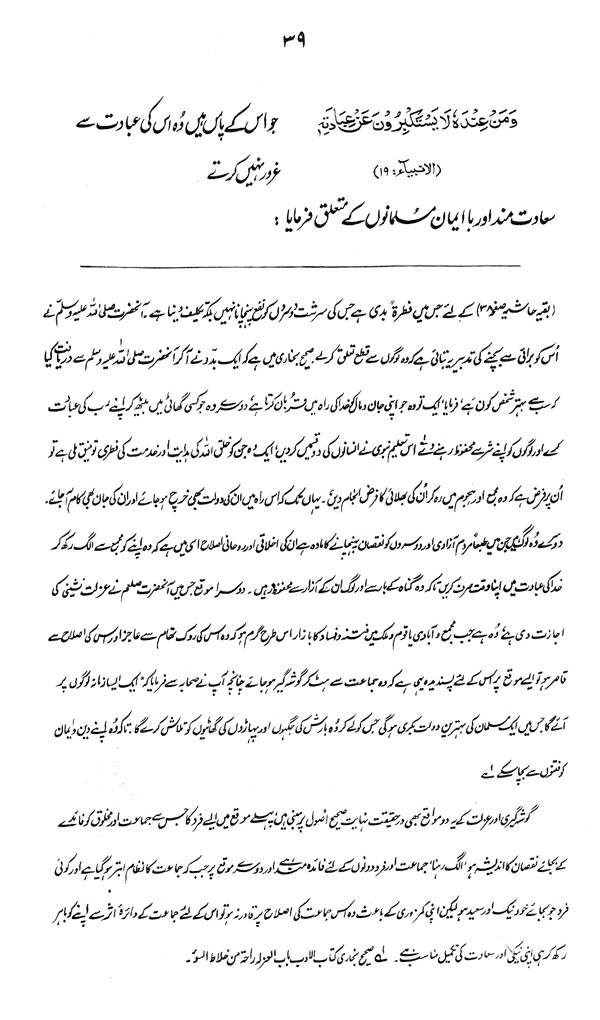 ۳۹
وَمَنْ عِنْدَهٗ لَا يَسْتَكْبِرُوْنَ عَنْ عِبَادَتِهٖ جو اس کے پاس ہیں وُہ اس کی عبادت سے
(الانبیاء: ۱۹) غرور نہیں کرتے
سعادت مند اور با ایمان مسلمانوں کے متعلق فرمایا :
(بقیہ حاشیہ صفحہ ۳۸) کے لئے جس میں فطرۃً بدی ہے جس کی سرشت دُوسروں کو نفع پہنچانا نہیں بلکہ تکلیف دینا ہے۔ آنحضرت صلی اللہ علیہ وسلم نے
اُس کو برائی سے بچنے کی تدبیر یہ بتائی ہے کہ وُہ لوگوں سے قطع تعلق کرلے صحیح بخاری میں ہے کہ ایک بدو نے آکر آنحضرت صلی اللہ علیہ وسلم سے دریافت کیا
کہ سب سے بہتر شخص کون ہے، فرمایا، ایک تو وہ جو اپنی جان و مال کو خدا کی راہ میں قربان کرتا ہے دوسرے وہ جو کسی گھاٹی میں بیٹھ کر اپنے رب کی عبادت
کرے اور لوگوں کو اپنے شر سے محفوظ رہنے دے اس تعلیم نبوی نے انسانوں کی دو قسمیں کردیں؛ ایک وُہ جن کو خلق اللہ کی ہدایت اور خدمت کی فطری توفیق ملی ہے تو
اُن پر فرض ہے کہ وہ مجمع اور ہجوم میں رہ کر اُن کی بھلائی کا فرض انجام دیں۔ یہاں تک کہ اس راہ میں ان کی دولت بھی خرچ ہو جائے اور ان کی جان بھی کام آجائے۔
دوسرے وُہ لوگ ہیں جن میں طبعاً مردم آزاری اور دوسروں کو نقصان پہنچانے کا مادہ ہے ان کی اخلاقی اور روحانی اصلاح اسی میں ہے کہ وہ اپنے کو مجمع سے الگ رکھ کر
خدا کی عبادت میں اپنا وقت صرف کریں تاکہ وہ گناہ کے بار سے اور لوگ ان کے آزار سے محفوظ رہیں۔ دوسرا موقع جس میں آنحضرت صلعم نے عزلت نشینی کی
اجازت دی ہے وُہ ہے جب مجمع و آبادی یا قوم و ملک میں فتنہ و فساد کا بازار اس طرح گرم ہو کہ وہ اس کی روک تھام سے عاجز اور اس کی اصلاح سے
قاصر ہو تو ایسے موقع پر اس کے لئے پسندیدہ یہی ہے کہ وہ جماعت سے ہٹ کر گوشہ گیر ہو جائے چنانچہ آپ نے صحابہ سے فرمایا کہ ایک ایسا زمانہ لوگوں پر
آئے گا جس میں ایک مسلمان کی بہترین دولت بکری ہوگی جس کو لے کر وُہ بارش کی جگہوں اور پہاڑوں کی گھاٹیوں کو تلاش کرے گا۔ تاکہ وُہ اپنے دین و ایمان
کو فتنوں سے بچا سکے لے
گوشہ گیری اور عزلت کے یہ دو مواقع بھی درحقیقت نہایت صحیح اُصول پر مبنی ہیں؛ پہلے موقع میں ایسے فرد کا جس سے جماعت اور مخلوق کو فائدے
کے بجائے نقصان کا اندیشہ ہو، الگ رہنا، جماعت اور فرد دونوں کے لئے فائدہ مند ہے اور دوسرے موقع پر جب کہ جماعت کا نظام ابتر ہو گیا ہے اور کوئی
فرد جو بجائے خود نیک اور سعید ہو لیکن اپنی کمزوری کے باعث وہ اس جماعت کی اصلاح پر قادر نہ ہو تو اس کے لئے جماعت کے دائرۂ اثر سے اپنے کو باہر
رکھ کر ہی اپنی نیکی اور سعادت کی تکمیل مناسب ہے۔ لے صحیح بخاری کتاب الادب باب العزلۃ راحۃ من خلاط السوء۔